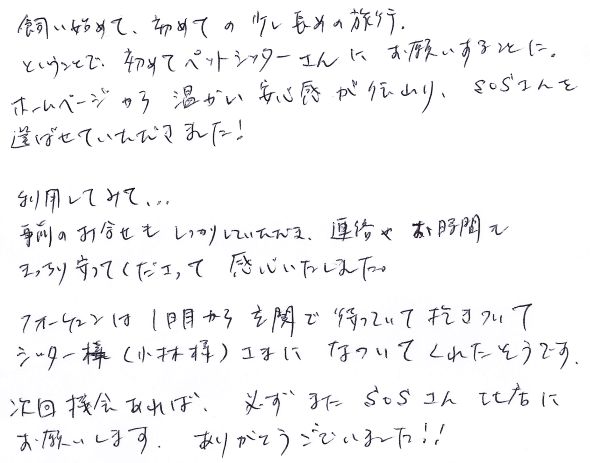 飼い始めて、初めての少し長めの旅行。
ということで、初めてペットシッターさんにお願いすることに。
ホームページから温かい安心感が伝わり、SOSさんを
選ばせていただきました!
利用してみて...
事前のお合せもしっかりしていただき、連絡やお時間も
きっちり守ってくださって感心いたしました。
フォーチュンは1日目から玄関で待っていて抱きついて
シッター様(小林様)さまになついてくれたそうです。
次回機会あれば、必ずまたSOSさん 比店に
お願いします。ありがとうございました!!